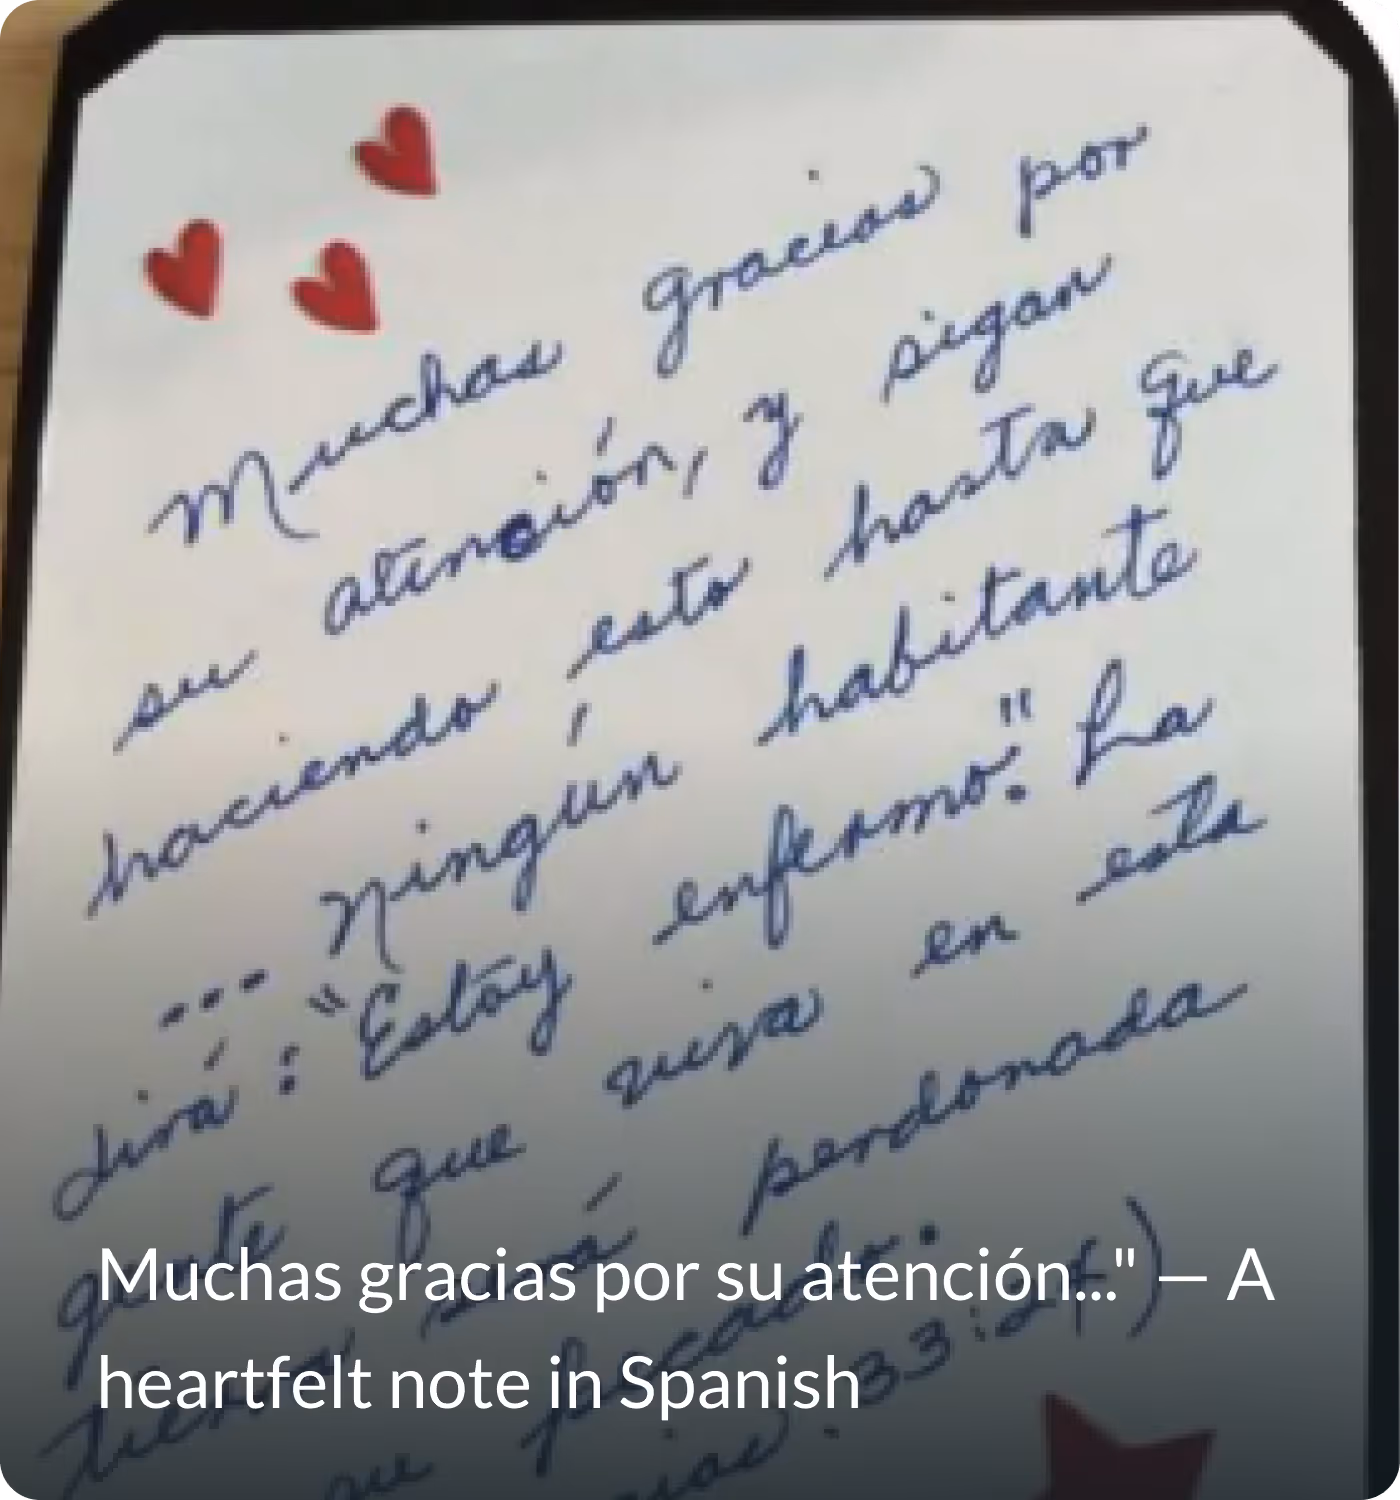 Muchas gracias por
su atención, y sigan
haciendo esto hasta que
... Ningún habitante
dirá: "Estoy enfermo". La
gente que viva en esta
tierra será perdonada
su pecado.
33:24)
Muchas gracias por su atención..." — A
heartfelt note in Spanish